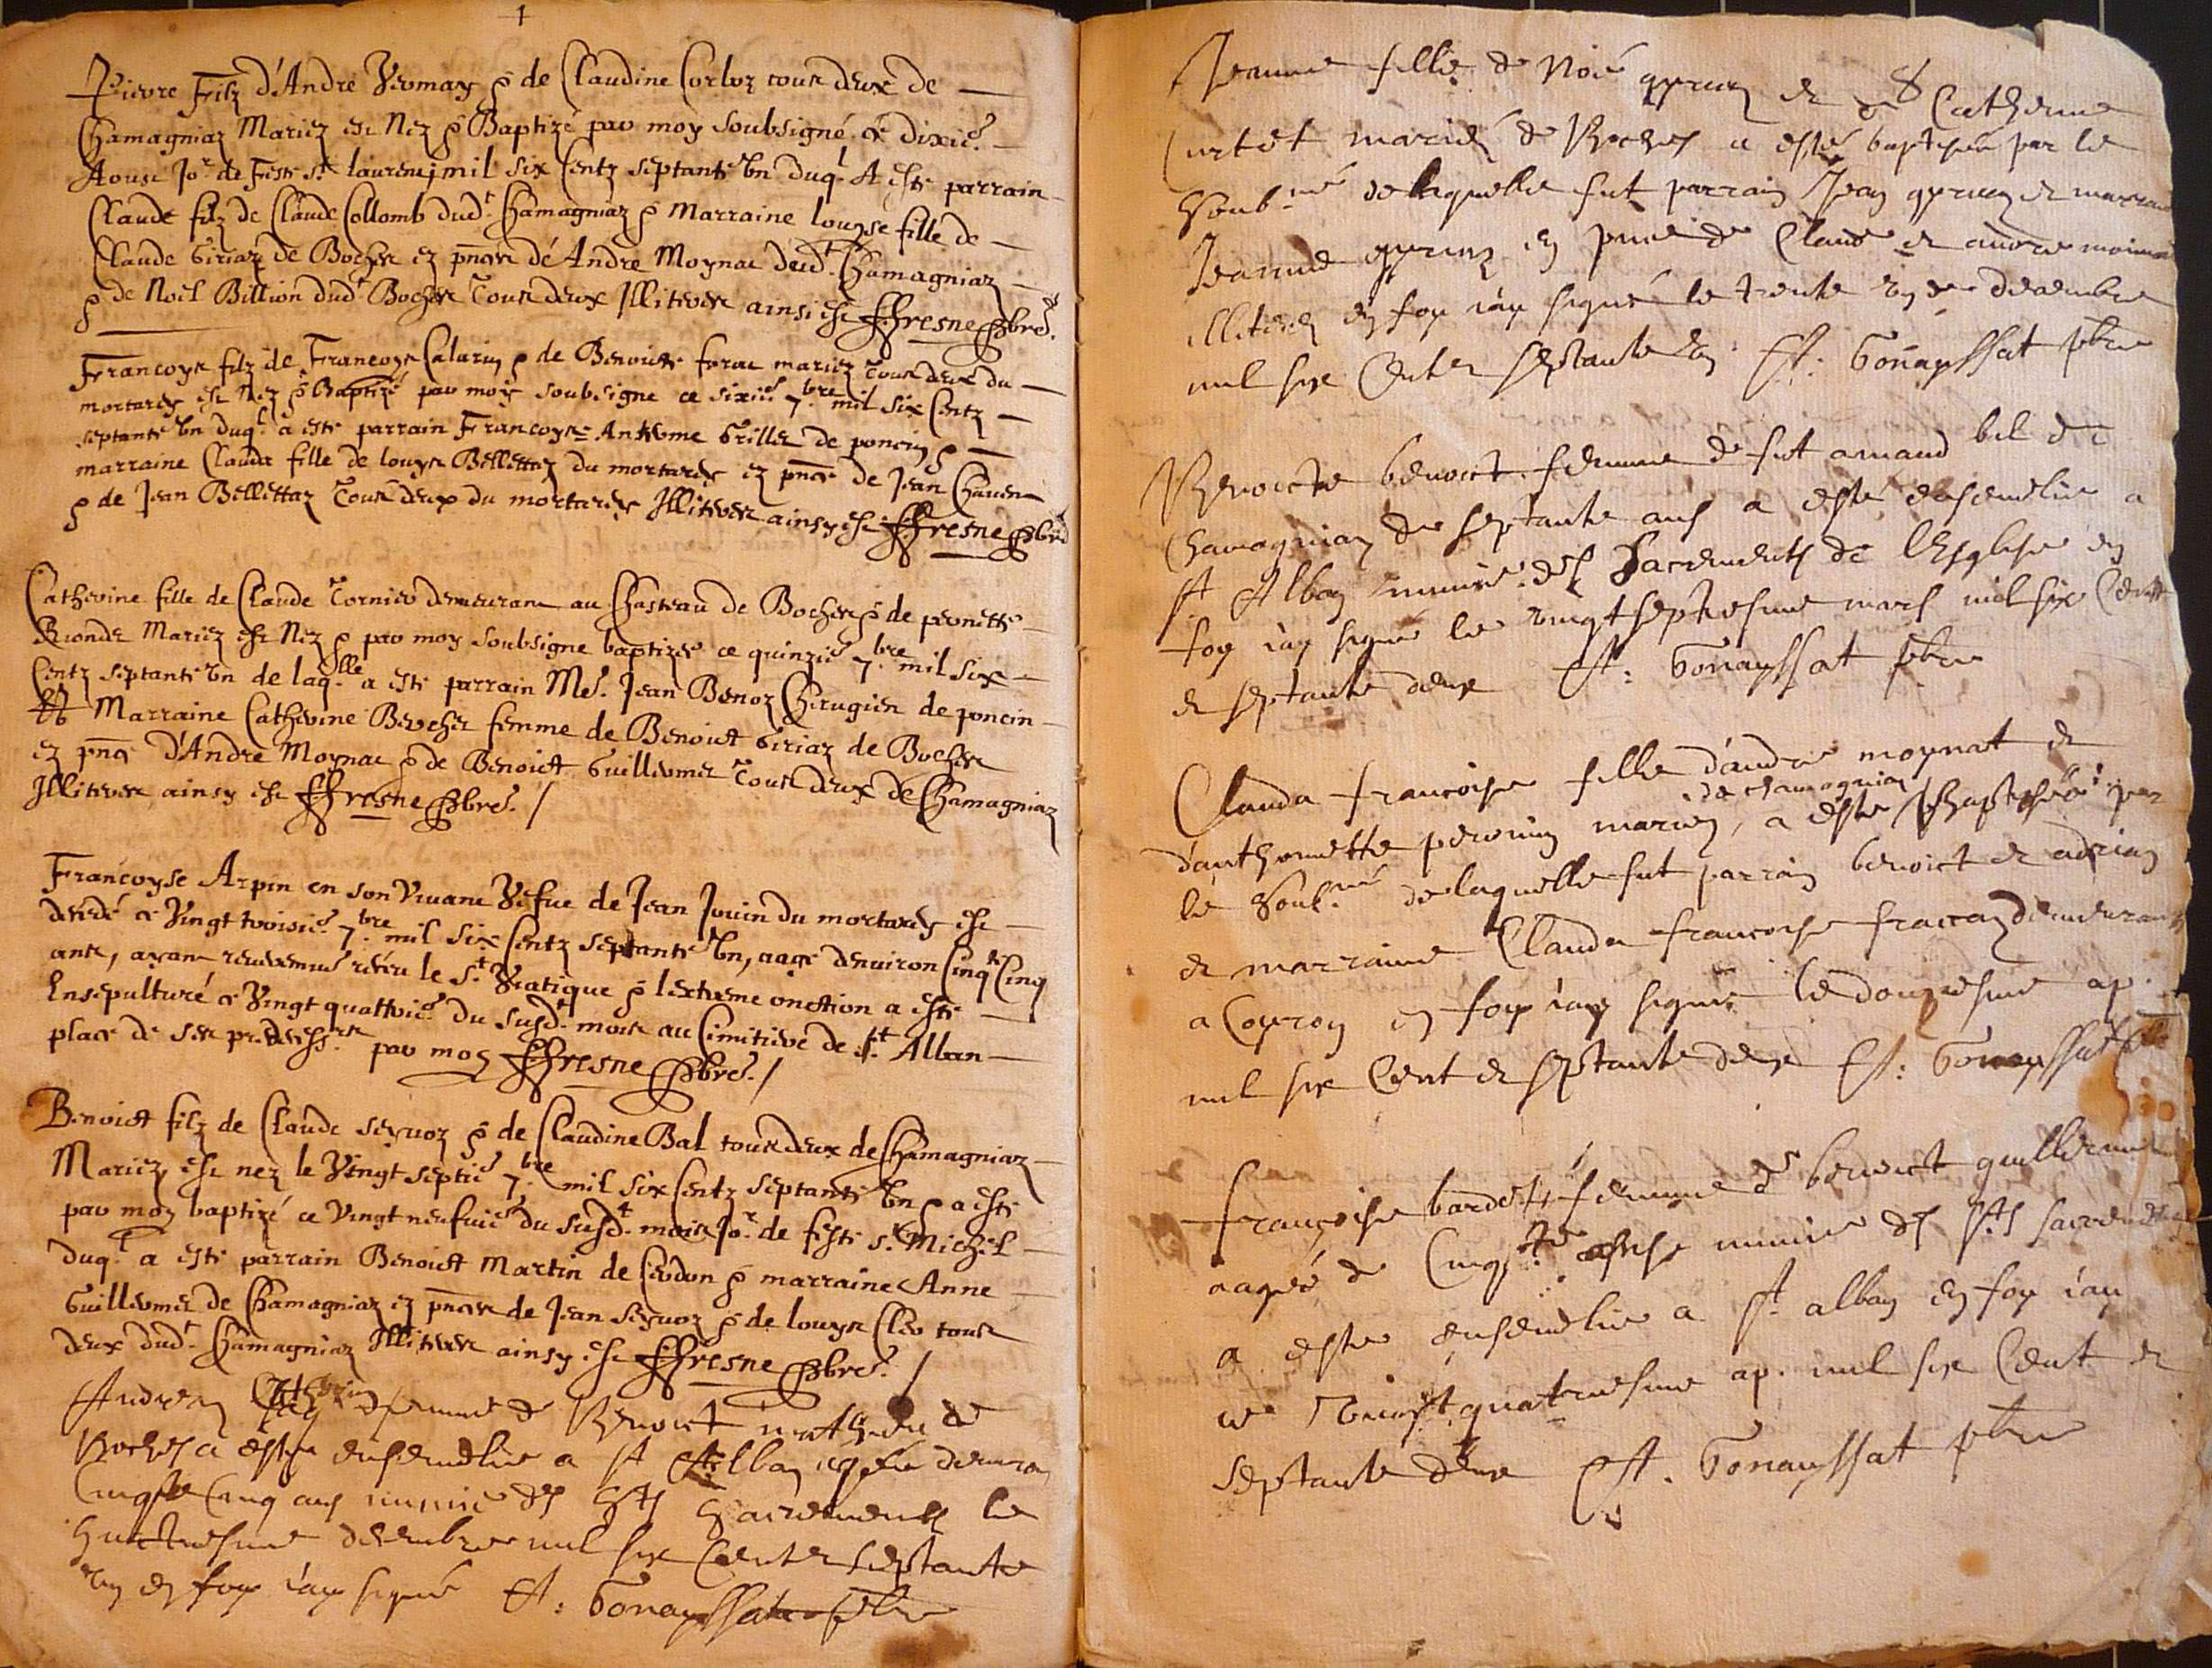 Pierre Filz d'André Yvomay & de Claudine Corloz tous deux de
Chamagniaz Mariez est Nez & Baptizé par moy Soubsigné ce dixie.
Aoust Jo.r de Feste St. laurent mil six Centz septante Vn duq.l A esté parrain
Claude filz de Claude Collomb dud.t Chamagniaz & Marraine louyse fille de
Claude Giriaz de Boches ez pñce d'André Moynat dud.t Chamagniaz
& de Noël Billion dud.t Boches Tous deux Illiteres ainsi est ffresne Pbre.
Francoys filz de Francoys Calarin & de Benoiste ferat mariez Tous deux du
mortarey est Nez & Baptizé par moy soubsigne ce sixie. 7.bre mil six Centz
septante Vn duq.l a esté parrain Francoys Antheme Grillet de poncin &
marraine Clauda fille de louys Billettaz du mortarey ez pñce de Jean
& de Jean Billettaz Tous deux du mortarey Illiteres ainsy est ffresne Pbre
Catherine fille de Claude Tornier demeurant au Chasteau de Boches & de pernette
Rionde Mariez est Nez & par moy soubsigne baptizée ce quinzie 7.bre mil six
Centz septante Vn de laq.lle a esté parrain Me. Jean Benoz Chirugien de poncin
& Marraine Catherine femme de Benoict Giriaz de Boches
ez pñce d'André Moynat & de Benoict Guillermet Tous deux de Chamagniaz
Illiteres ainsy est ffresne Pbre. /
Francoyse Arpin en son Viuant Vefue de Jean Jouin du mortarey est
decedé ce Vingt troisie. 7.bre mil six Centz septante Vn, aagé denuiron Cinq.te Cinq
ans, ayant receu le S.t Viatique & lextreme onction a esté
Ensepulturé ce Vingt quattrie. du susd.t mois au Cimitiere de S.t Alban
place de ses predecess.rs par moy ffresne Pbre. /
Benoict filz de Claude seruoz & de Claudine Bal tous deux de Chamagniaz
Mariez est nez le Vingt septie 7.bre mil six Centz septante Vn & a esté
par moy baptizé ce Vingt neufuie du susd.t mois Jo.r de feste s.t Michel
duq.l a esté parrain Benoict Martin de Cerdon & marraine Anne
Guillermet de Chamagniaz ez pñce de Jean seruoz & de louys Cler tous
deux dud.t Chamagniaz Illiteres ainsy est ffresne Pbre. /
femme de Benoict mathieu de
Boches a esté enseuelie a St Alban agée denuiron
Cinq.te Cinq ans munie des Sts Sacrements le
huictiesme decembre mil six Cents septante
vn en foy iay signé A: Gonayssat pbre
Jeanne fille de Noé et de Catherine
Curtet mariés de Boches a esté baptisée par le
Soub.né de laquelle fut parrain Jean et marraine
Jeanne en pnce de Claude et andre moinat
illiterés en foy iay signé le trente vn decembre
mil six Cents septante vn A: Gonayssat pbre
Benoicte benoict femme de fut amand bel de
Chamagniaz de septante ans a esté enseuelie a
St Alban munie des Sacrements de lEsglise en
foy iay signé le vingt septiesme mars mil six Cent
et septante deux A: Gonayssat pbre
Clauda francoise fille d'andre moynat et
de chamagniaz
d'anthomette peronin mariez, a esté Baptisée par
le Soub.né de laquelle fut parrain benoict et adrian
et marraine Clauda francoise demeurant
a en foy iay signé le douziesme ap.
mil six Cent et septante deux A: Gonayssat pbre
françoise femme de benoict guillermet
aagée de Cinq.te munie des Sts sacrements
a esté enseuelie a St alban en foy iay
ce Vingt quatriesme ap. mil six Cent et
septante deux A. Gonayssat pbre